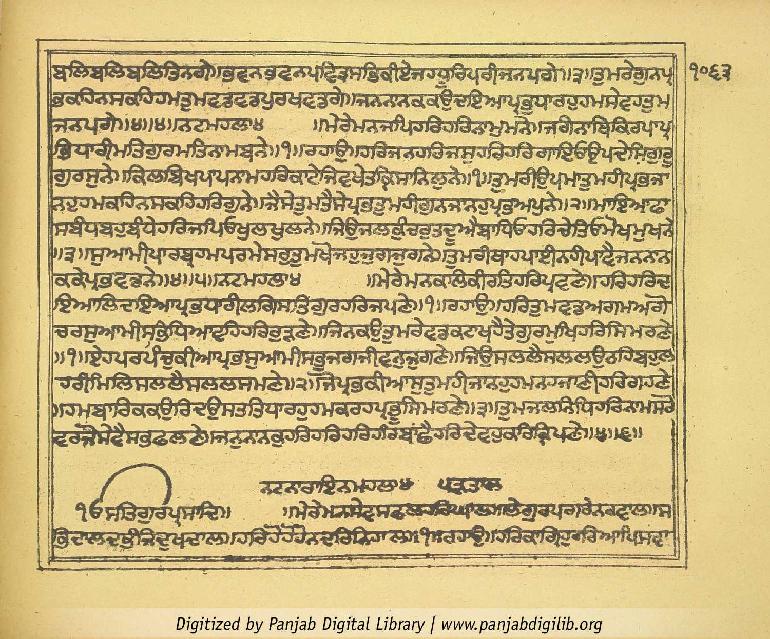 ਬਲਿਬਲਿਬਲਿਤਿਨਗੇ॥ਭਵਨਭਵਨਪਵਿਤ੍ਰਸਭਿਕੀਏਜਹਧੂਰਿਪਰੀਜਨਪਗੇ॥੩॥ਤੁਮਰੇਗੁਨਪ੍ਰ ੧੦੬੩
ਭਕਹਿਨਸਕਹਿਹਮਤੁਮਵਡਵਡਪੁਰਖਵਡਗੇ॥ਜਨਨਾਨਕਕਉਦਇਆਪ੍ਰਭਧਾਰਹੁਹਮਸੇਵਹਤੁਮ
ਜਨਪਗੇ॥੪॥੪॥ਨਟਮਹਲਾ੪ ॥ਮੇਰੇਮਨਜਪਿਹਰਿਹਰਿਨਾਮੁਮਨੇ॥ਜਗੰਨਾਥਿਕਿਰਪਾਪ੍ਰ
ਭਿਧਾਰੀਮਤਿਗੁਰਮਤਿਨਾਮਬਨੇ॥੧॥ਰਹਾਉ॥ਹਰਿਜਨਹਰਿਜਸੁਹਰਿਹਰਿਗਾਇਓਉਪਦੇਸਿਗੁਰੂ
ਗੁਰਸੁਨੇ॥ਕਿਲਬਿਖਪਾਪਨਾਮਹਰਿਕਾਟੇਜਿਵਖੇਤਕ੍ਰਿਸਾਨਿਲੁਨੇ॥੧॥ਤੁਮਰੀਉਪਮਾਤੁਮਹੀਪ੍ਰਭਜਾ
ਨਹੁਹਮਕਹਿਨਸਕਹਿਹਰਿਗੁਨੇ॥ਜੈਸੇਤੁਮਤੈਸੇਪ੍ਰਭਤੁਮਹੀਗੁਨਜਾਨਹੁਪ੍ਰਭਅਪੁਨੇ॥੨॥ਮਾਇਆਫਾ
ਸਬੰਧਬਹੁਬੰਧੇਹਰਿਜਪਿਓਖੁਲਖੁਲਨੇ॥ਜਿਉਜਲਕੁੰਚਰੁਤਦੂਐਬਾਂਧਿਓਹਰਿਚੇਤਿਓਮੋਖਮੁਖਨੇ
॥੩॥ਸੁਆਮੀਪਾਰਬ੍ਰਹਮਪਰਮੇਸਰੁਤੁਮਖੋਜਹੁਜੁਗਜੁਗਨੇ॥ਤੁਮਰੀਥਾਹਪਾਈਨਹੀਪਾਵੈਜਨਨਾਨ
ਕਕੇਪ੍ਰਭਵਡਨੇ॥੪॥੫॥ਨਟਮਹਲਾ੪ ॥ਮੇਰੇਮਨਕਲਿਕੀਰਤਿਹਰਿਪ੍ਰਵਣੇ॥ਹਰਿਹਰਿਦ
ਇਆਲਿਦਇਆਪ੍ਰਭਧਾਰੀਲਗਿਸਤਿਗੁਰਹਰਿਜਪਣੇ॥੧॥ਰਹਾਉ॥ਹਰਿਤੁਮਵਡਅਗਮਅਗੋ
ਚਰਸੁਆਮੀਸਭਿਧਿਆਵਹਿਹਰਿਰੁੜਣੇ॥ਜਿਨਕਉਤੁਮਰੇਵਡਕਟਾਖਹੈਤੇਗੁਰਮੁਖਿਹਰਿਸਿਮਰਣੇ
॥੧॥ਇਹੁਪਰਪੰਚੁਕੀਆਪ੍ਰਭਸੁਆਮੀਸਭੁਜਗਜੀਵਨੁਜੁਗਣੇ॥ਜਿਉਸਲਲੈਸਲਲਉਠਹਿਬਹੁਲ
ਹਰੀਮਿਲਿਸਲਲੈਸਲਲਸਮਣੇ॥੨॥ਜੋਪ੍ਰਭਕੀਆਸੁਤੁਮਹੀਜਾਨਹੁਹਮਨਹਜਾਣੀਹਰਿਗਹਣੇ
॥ਹਮਬਾਰਿਕਕਉਰਿਦਉਸਤਤਿਧਾਰਹੁਹਮਕਰਹਪ੍ਰਭੂਸਿਮਰਣੇ॥੩॥ਤੁਮਜਲਨਿਧਿਹਰਿਮਾਨਸਰੋ
ਵਰਜੋਸੇਵੈਸਭਫਲਣੇ॥ਜਨੁਨਾਨਕੁਹਰਿਹਰਿਹਰਿਹਰਿਬਾਂਛੈਹਰਿਦੇਵਹੁਕਰਿਕ੍ਰਿਪਣੇ॥੪॥੬॥
ਨਟਨਾਰਾਇਨਮਹਲਾ੪ ਪੜਤਾਲ
ੴਸਤਿਗੁਰਪ੍ਰਸਾਦਿ॥ ॥ਮੇਰੇਮਨਸੇਵਸਫਲਹਰਿਘਾਲ॥ਲੇਗੁਰਪਗਰੇਨਰਵਾਲ॥ਸ
ਭਿਦਾਲਦਭੰਜਿਦੁਖਦਾਲ॥ਹਰਿਹੋਹੋਹੋਨਦਰਿਨਿਹਾਲ॥੧॥ਰਹਾਉ॥ਹਰਿਕਾਗ੍ਰਿਹੁਹਰਿਆਪਿਸਵਾ
Digitized by Panjab Digital Library | www.panjabdigilib.org